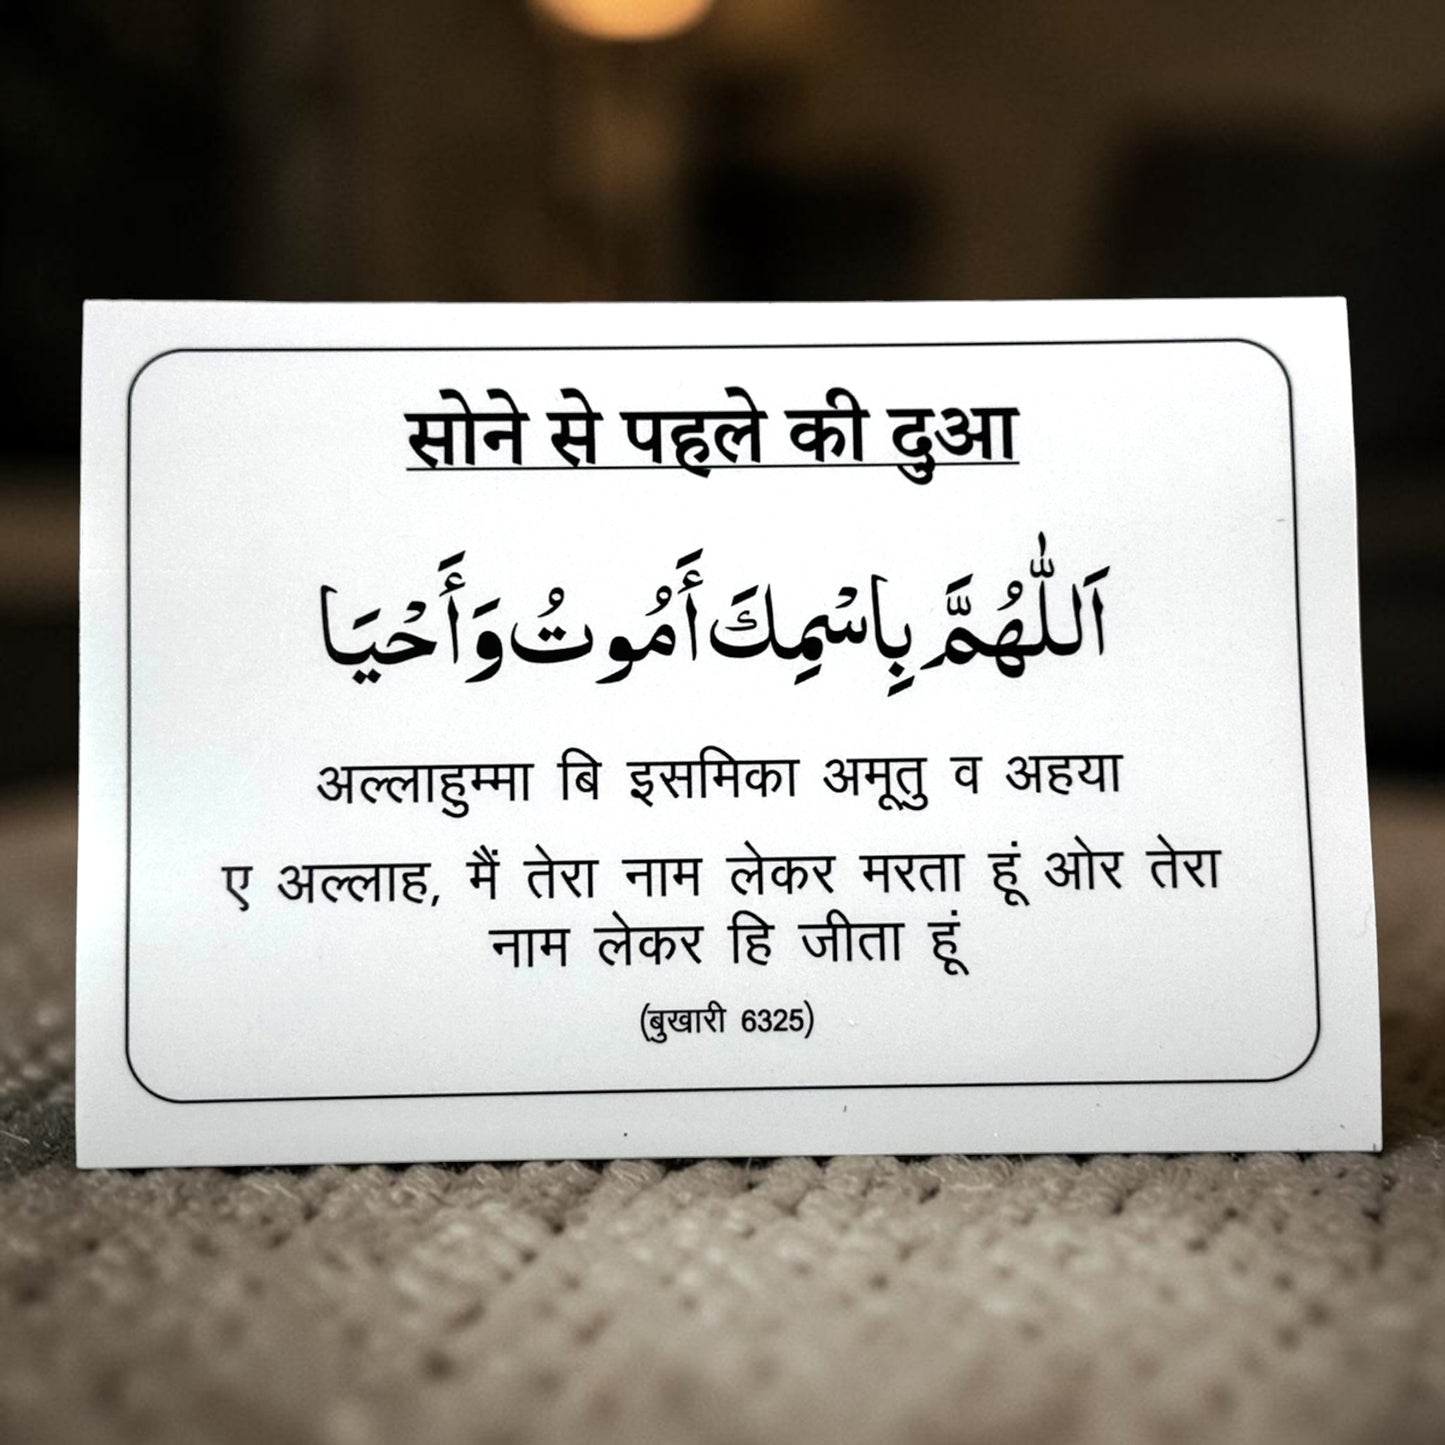 सोने से पहले की दुआ
اَللّٰهُمَّ بِاسْمِكَ أَمُوتُ وَأَحْيَا
अल्लाहुम्मा बि इसमिका अमूतु व अहया
ए अल्लाह, मैं तेरा नाम लेकर मरता हूं ओर तेरा
नाम लेकर हि जीता हूं
(बुखारी 6325)